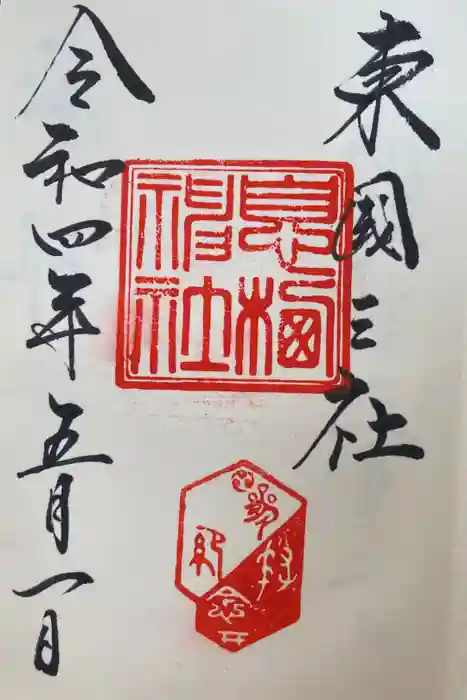 東國三社
息栖
神社
参拝
記念
令和四年五月一日